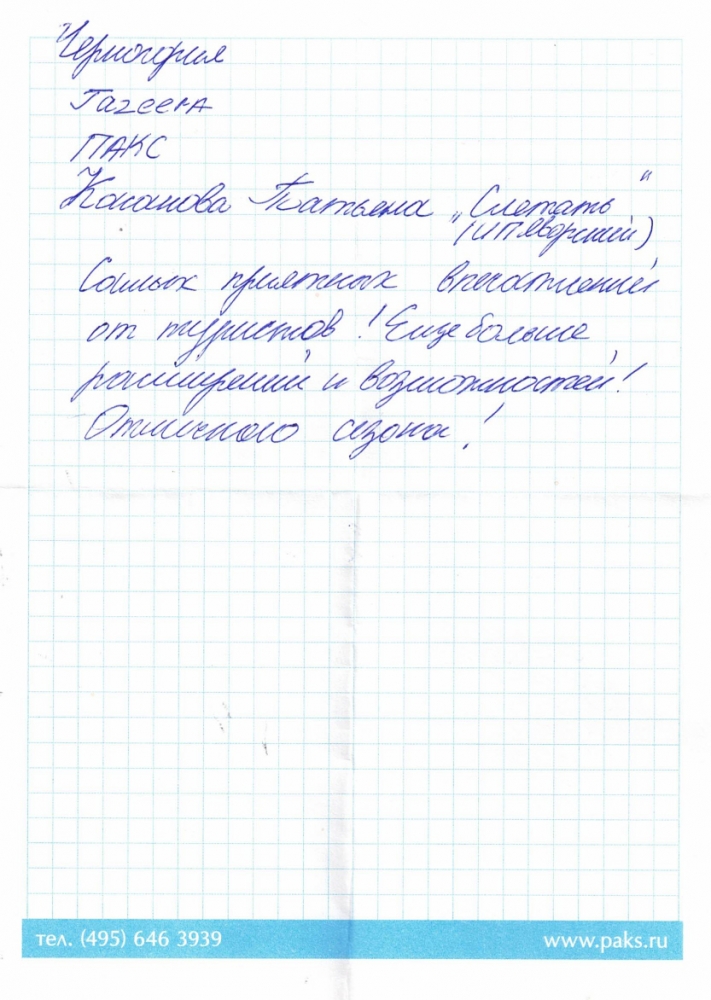 Черногория
Тагеена
ПАКС
Касанова Татьяна „Слетать"
(ИП Яворский)
Самых приятных впечатлений
от туристов! Еще больше
расширений и возможностей!
Отличного сезона!
тел. (495) 646 3939
www.paks.ru